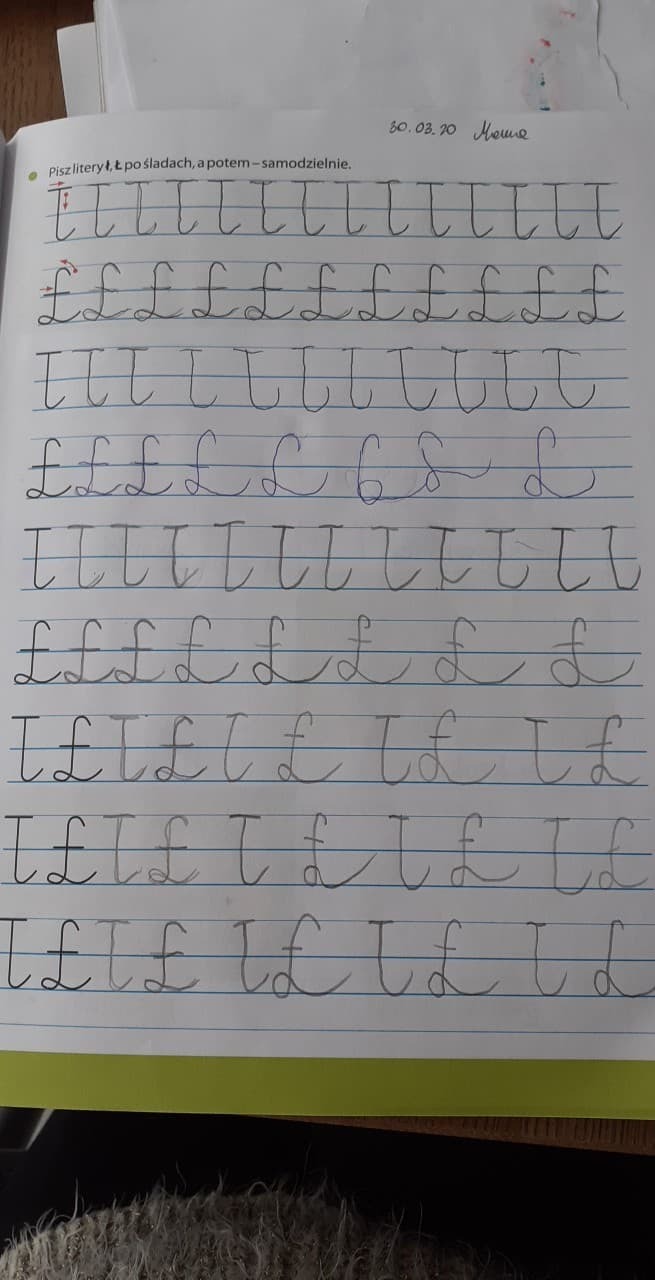 30.03.20
Pisz litery ł, Ł po śladach, a potem – samodzielnie.
ł ł ł ł ł ł ł ł ł ł ł ł ł ł
Ł Ł Ł Ł Ł Ł Ł Ł Ł Ł Ł
ł ł ł ł ł ł ł ł ł ł ł
Ł Ł Ł Ł Ł Ł
ł ł ł ł ł ł ł ł ł ł ł ł
Ł Ł Ł Ł Ł Ł Ł Ł
ł Ł ł Ł ł Ł ł Ł ł Ł
ł Ł ł Ł ł Ł ł Ł ł Ł
ł Ł ł Ł ł Ł ł Ł ł Ł